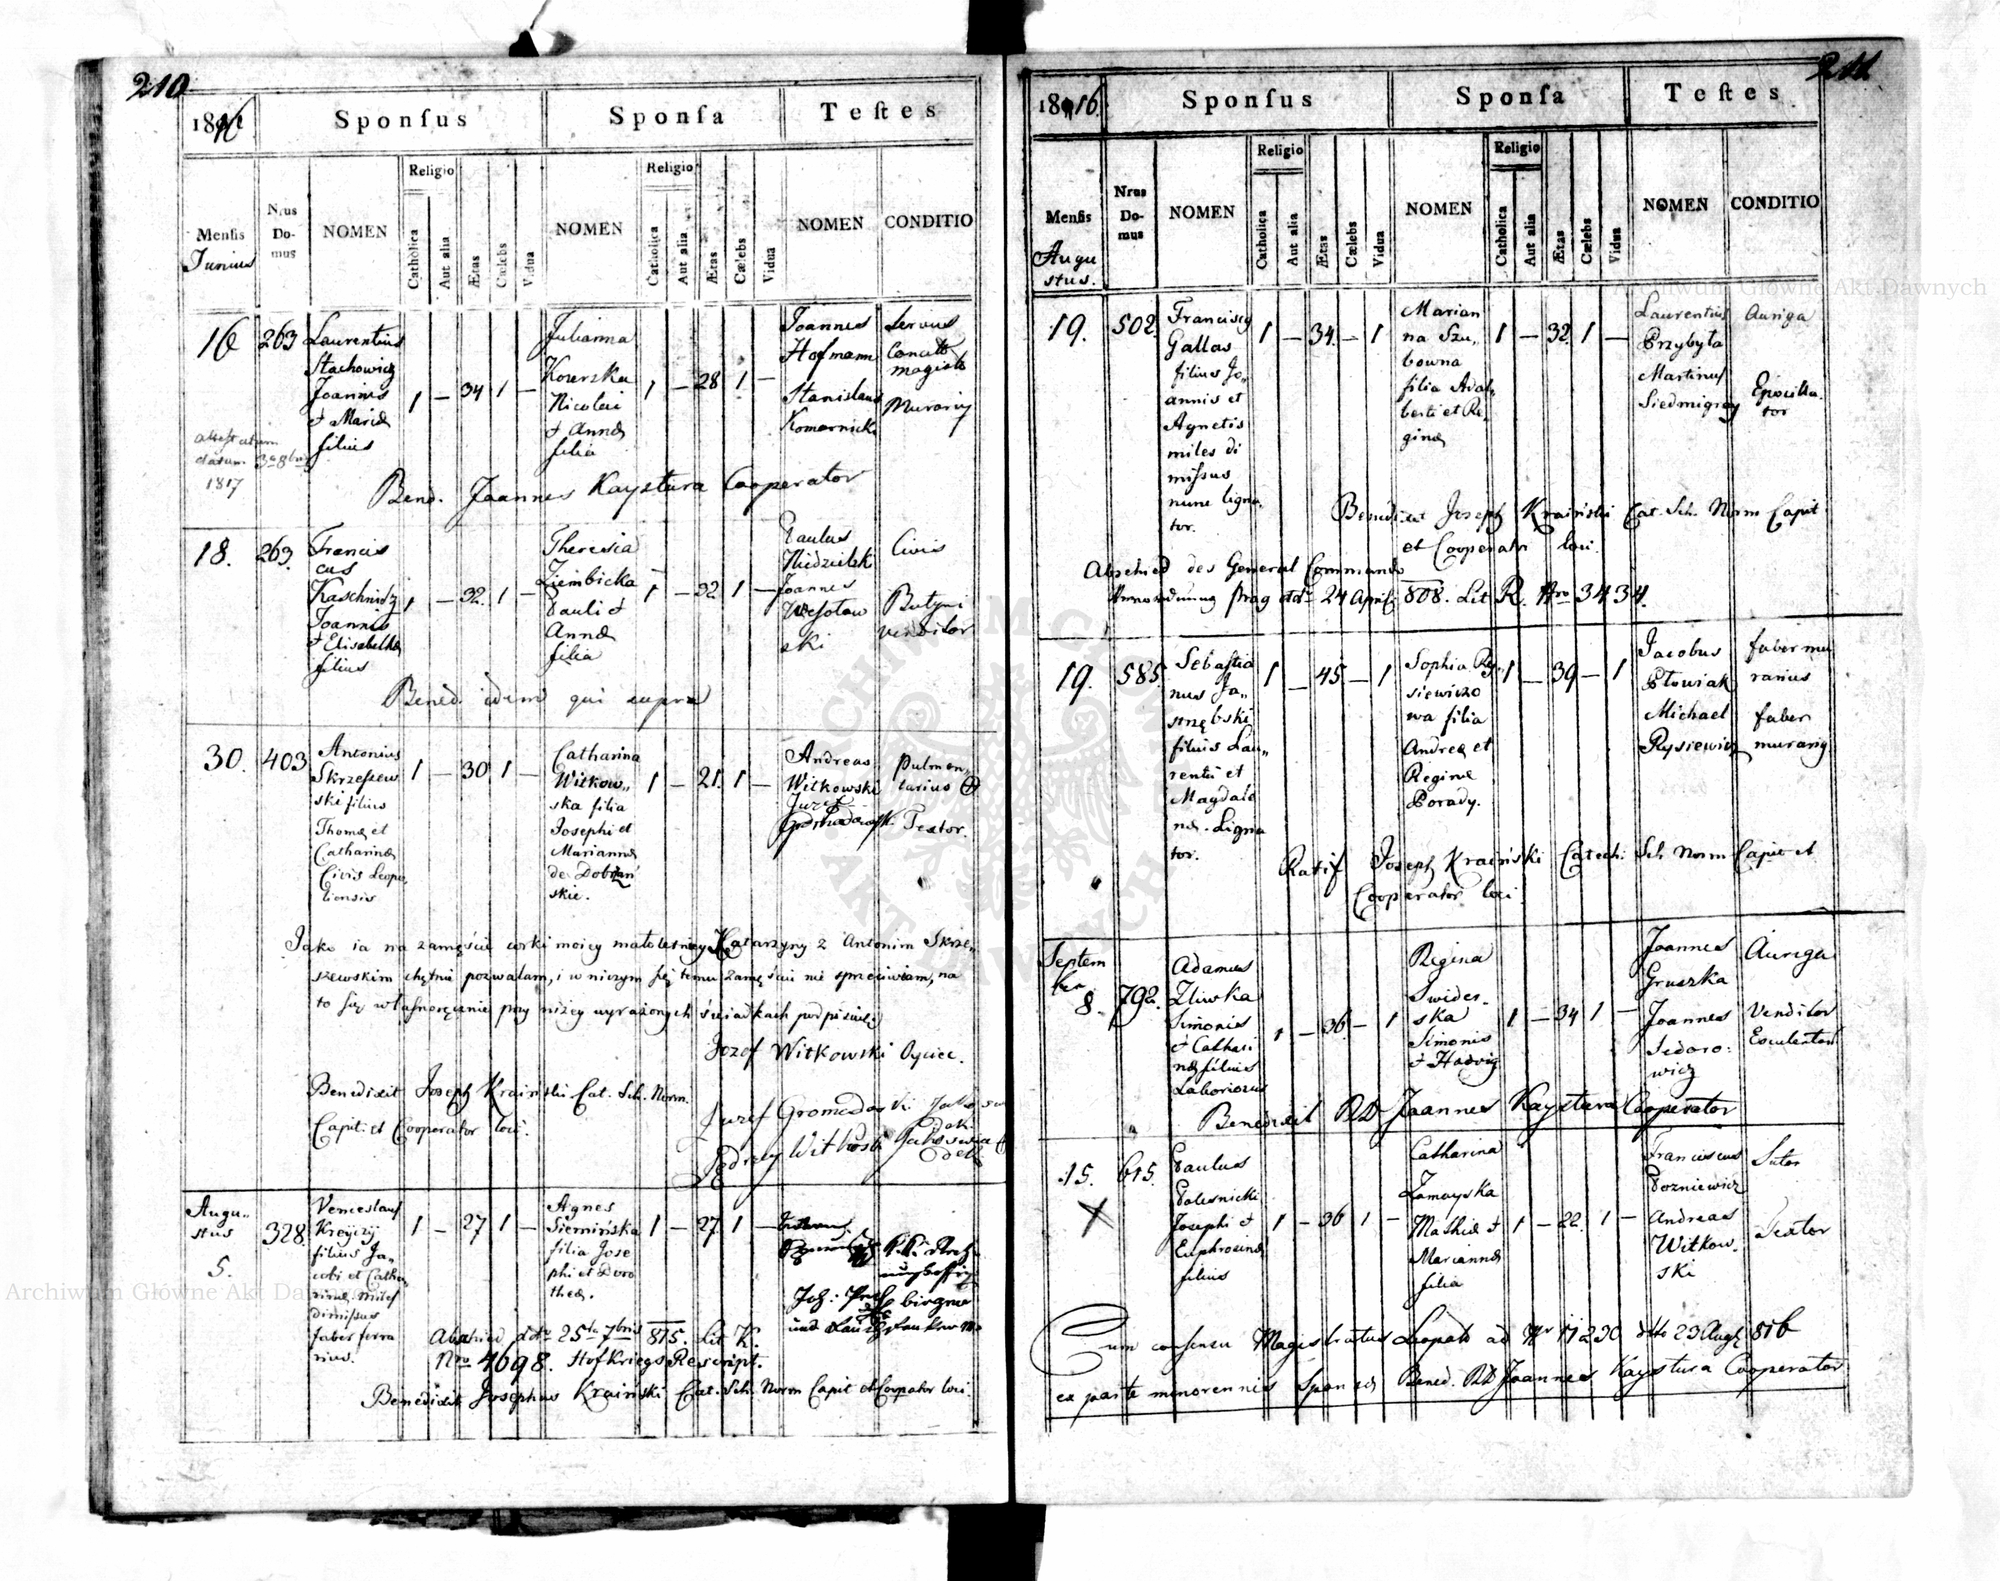 210
1816
Sponſus
Sponſa
Teſtes
Menſis
Junius
Nrus
Do-
mus
NOMEN
Religio
Catholica
Aut alia
Ætas
Cælebs
Vidua
NOMEN
Religio
Catholica
Aut alia
Ætas
Cælebs
Vidua
NOMEN
CONDITIO
16
263
Laurentius
Stachowicz
Joannis
et Mariæ
filius
1 — 34 1 —
Julianna
Nicolai
et Annæ
filia
1 — 28 1 —
Joannes
Hofmann
Stanislaus
Komarnicki
Servus
attestatum
datum
1817
Bened. Joannes Kaystura Cooperator
18.
263.
Francis
cus
Kaschnitz
Joannis
et Elisabethæ
filius
1 — 32. 1 —
Theresia
Ziembicka
Pauli et
Annæ
filia
1 — 32 1 —
Paulus
Niedzielski
Joannes
Wesołow
ski
Civis
Butyri
venditor
Bened. idem qui supra
30.
403
Antonius
Skrzeszew
ski filius
Thomæ et
Catharinæ
Civis Leopo
liensis
1 — 30 1 —
Catharina
Witkow„
ska filia
Josephi et
Mariannæ
de Dobrzań
skie.
1 — 21. 1 —
Andreas
Witkowski
Pulmen„
tarius
Textor.
Jako ia na zamęście corki moiey małoletniey Katarzyny z Antonim Skrze„
szewskim chętnie pozwalam, i w niczym się temu zamęściu nie sprzeciwiam, na
to się własnoręcznie przy niżey wyrażonych świadkach podpisuię
Jozef Witkowski Oyciec.
Benedixit Joseph Kraiński Cat. Sch. Norm.
Capit: et Cooperator loci.
Juzef Gromadzki
Jędrzey Witkoski
Augu„
stus
5.
328.
Venceslaus
Kreyczy
filius Ja„
cobi et Catha„
rinæ miles
dimissus
faber ferra
rius.
1 — 27 1 —
Agnes
Siemińska
filia Jose
phi et Doro
theæ.
1 — 27. 1 —
Abschied ddto 25ta 7bris 815. Lit K.
Nro 4698. HofKriegsRescript.
Benedixit Josephus Kraiński Cat. Sch. Norm Capit et Cooperator loci.
211
1816.
Sponſus
Sponſa
Teſtes
Menſis
Augu
stus.
Nrus
Do-
mus
NOMEN
Religio
Catholica
Aut alia
Ætas
Cælebs
Vidua
NOMEN
Religio
Catholica
Aut alia
Ætas
Cælebs
Vidua
NOMEN
CONDITIO
19.
502.
Franciscus
Gallas
filius Jo„
annis et
Agnetis
miles di
missus
nunc ligna
tor.
1 — 34. — 1
Marian
na Szu„
bowna
filia Adal„
berti et Re„
ginæ
1 — 32. 1 —
Laurentius
Przybyła
Martinus
Siedmigroy
Auriga
Epocilla„
tor
Benedixit Joseph Kraiński Cat. Sch. Norm Capit
et Cooperator loci.
Abschied des General Commando
Anordnung Prag ddto 24 April 808. Lit R. Nro 3434.
19.
585.
Sebastia
nus Ja„
strzębski
filius Lau„
rentii et
Magdale
næ. Ligna
tor.
1 — 45 — 1
Sophia Ry„
siewiczo
wa filia
Andreæ et
Reginæ
Porady.
1 — 39 — 1
Jacobus
Płowiak
Michael
Rysiewicz
faber mu
rarius
faber
murarius
Ratif Joseph Kraiński Catech. Sch Norm Capit et
Cooperator loci
Septem
ber
8.
792.
Adamus
Zliwka
Simonis
et Cathari
næ filius
Laboriosus
1 — 36 — 1
Regina
Swider„
ska
Simonis
et Hedvigis
1 — 34 1 —
Joannes
Gruszka
Joannes
Sidoro:
wicz
Auriga
Venditor
Esculentor
Benedixit RD Joannes Kaystura Cooperator
15.
615.
Paulus
Polesnicki
Josephi et
Euphrosinæ
filius
1 — 36 1 —
Catharina
Zamoyska
Mathiæ et
Mariannæ
filia
1 — 22. 1 —
Franciscus
Pozniewicz
Andreas
Witkow„
ski
Sutor
Textor
Cum consensu Magistratus Leopol. ad Nr 11230 ddto 23 Aug 816
ex parte minorennis Sponsæ Bened. RD Joannes Kaystura Cooperator
Archiwum Główne Akt Dawnych
Archiwum Główne Akt Dawnych
ARCHIWUM GŁÓWNE
AKT DAWNYCH